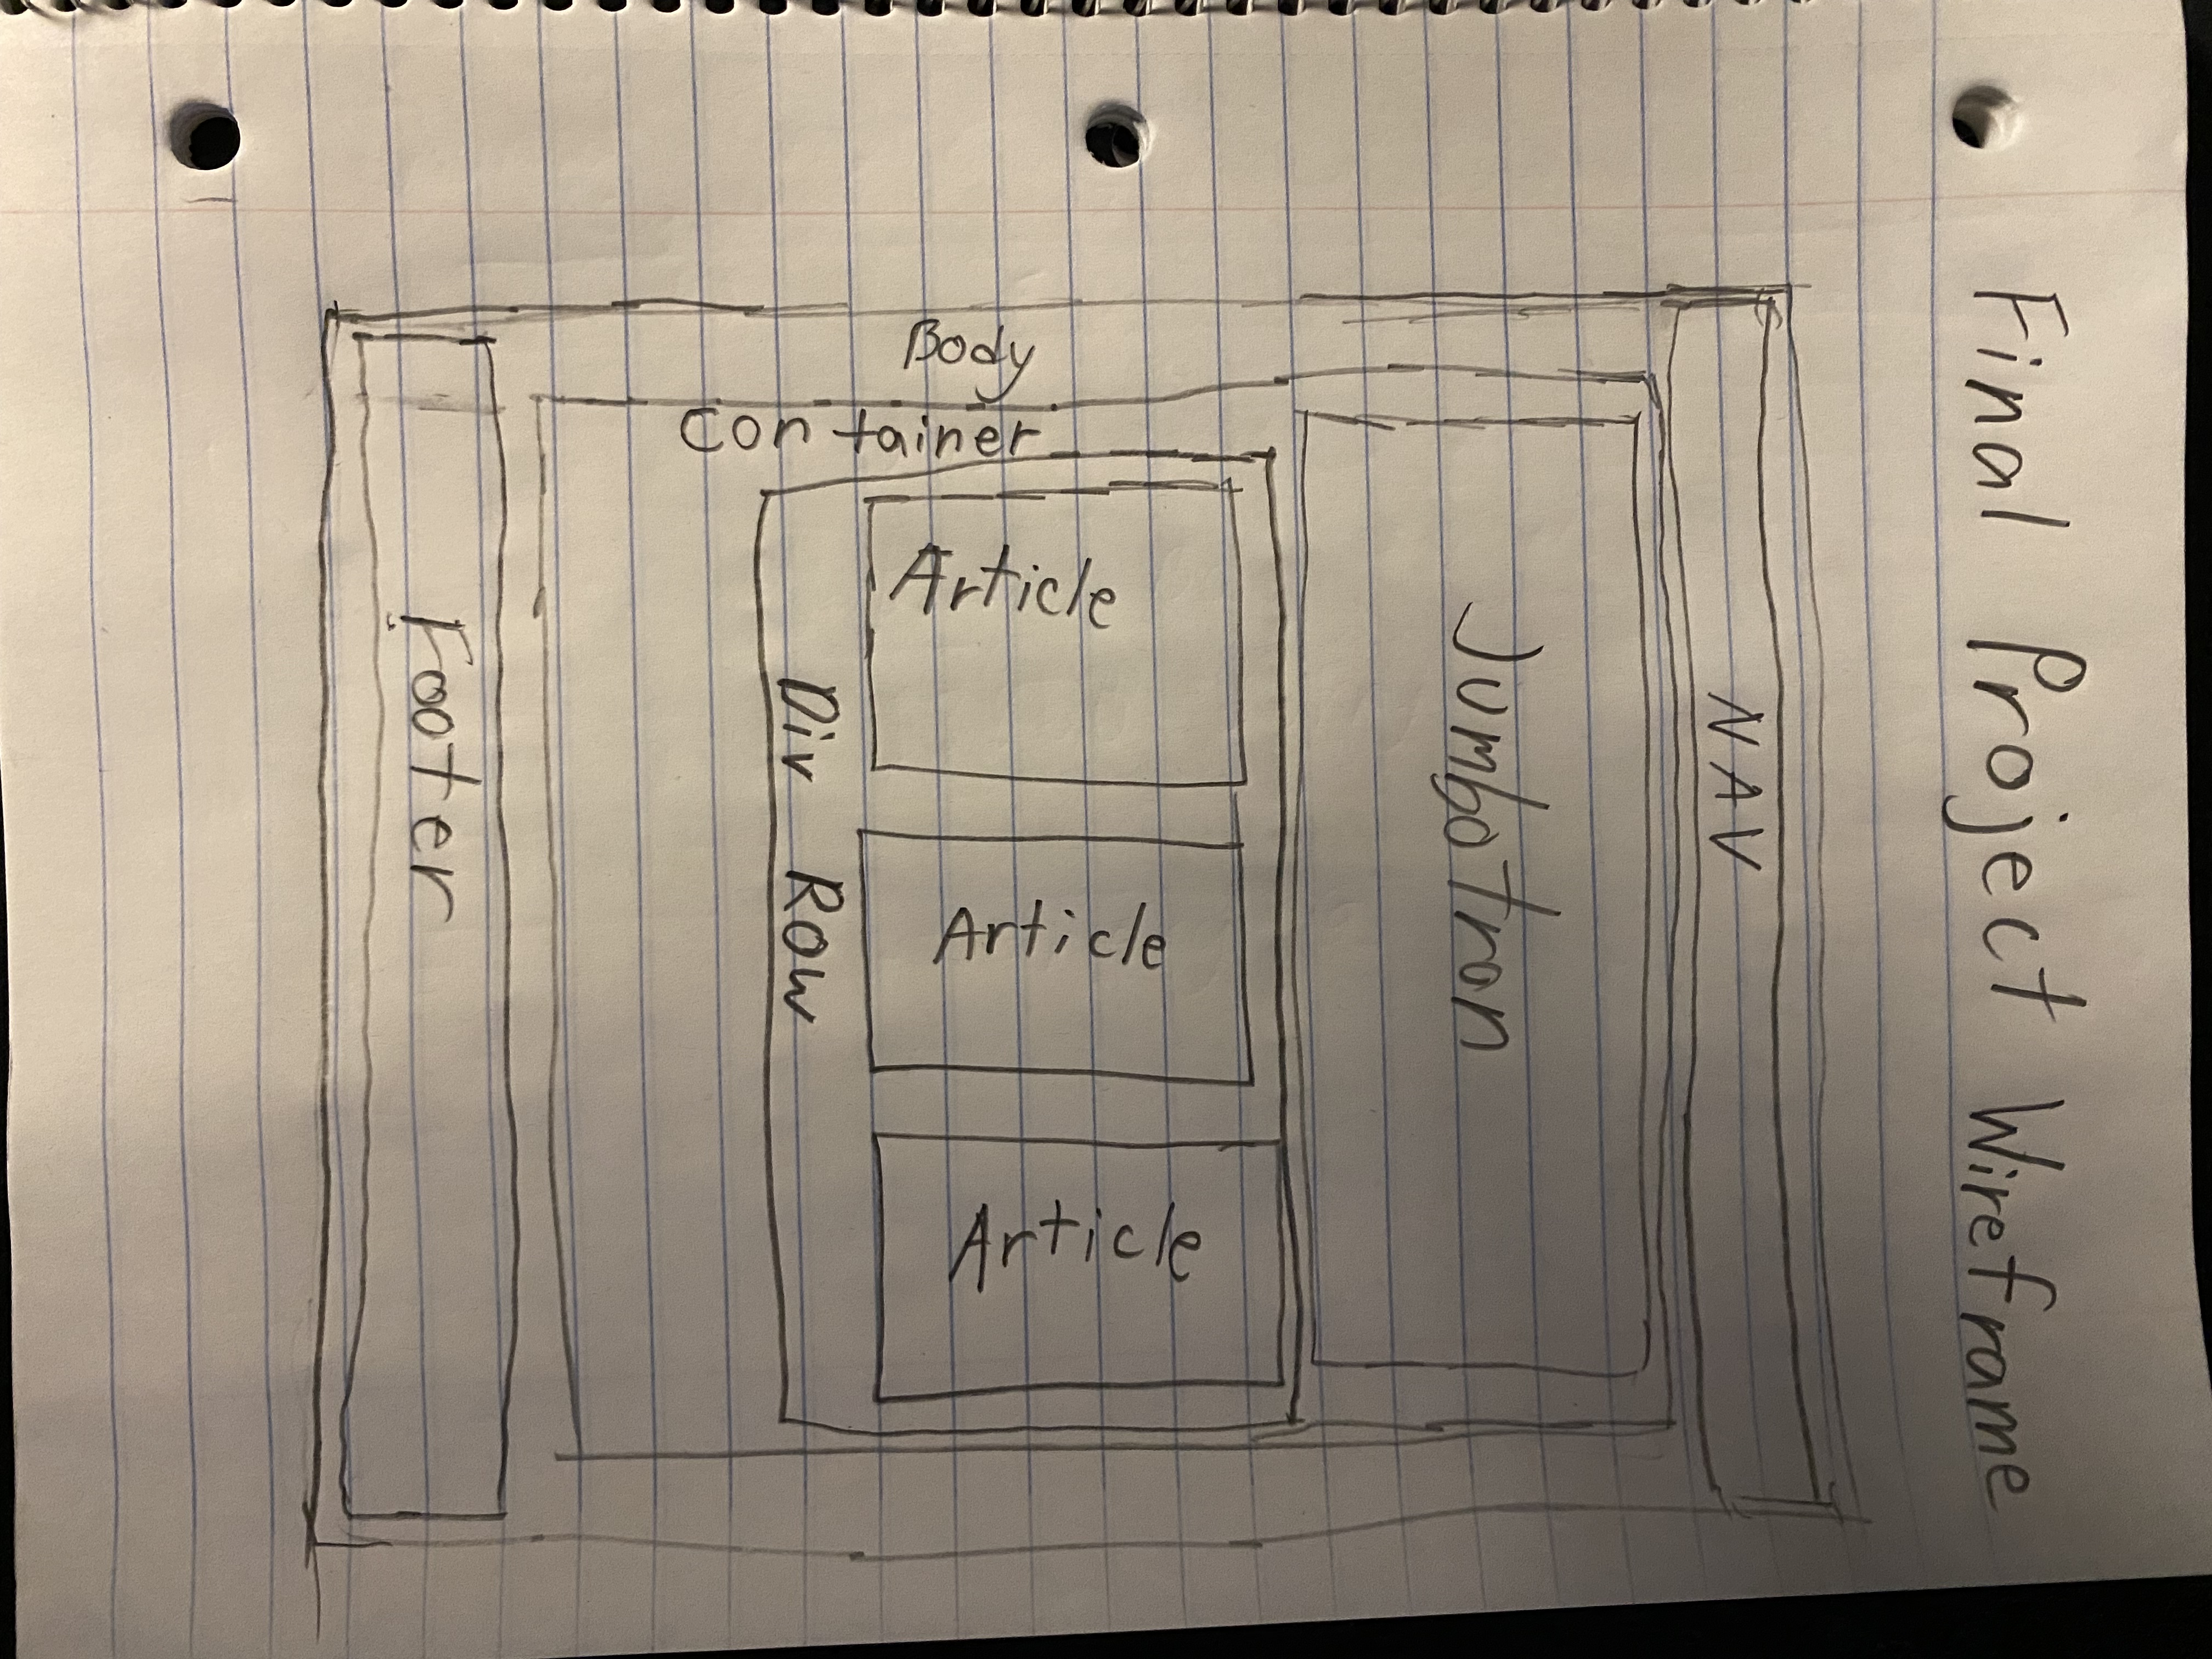 Final Project Wireframe
NAV
Jumbotron
Body
Container
Article
Article
Article
Div Row
Footer